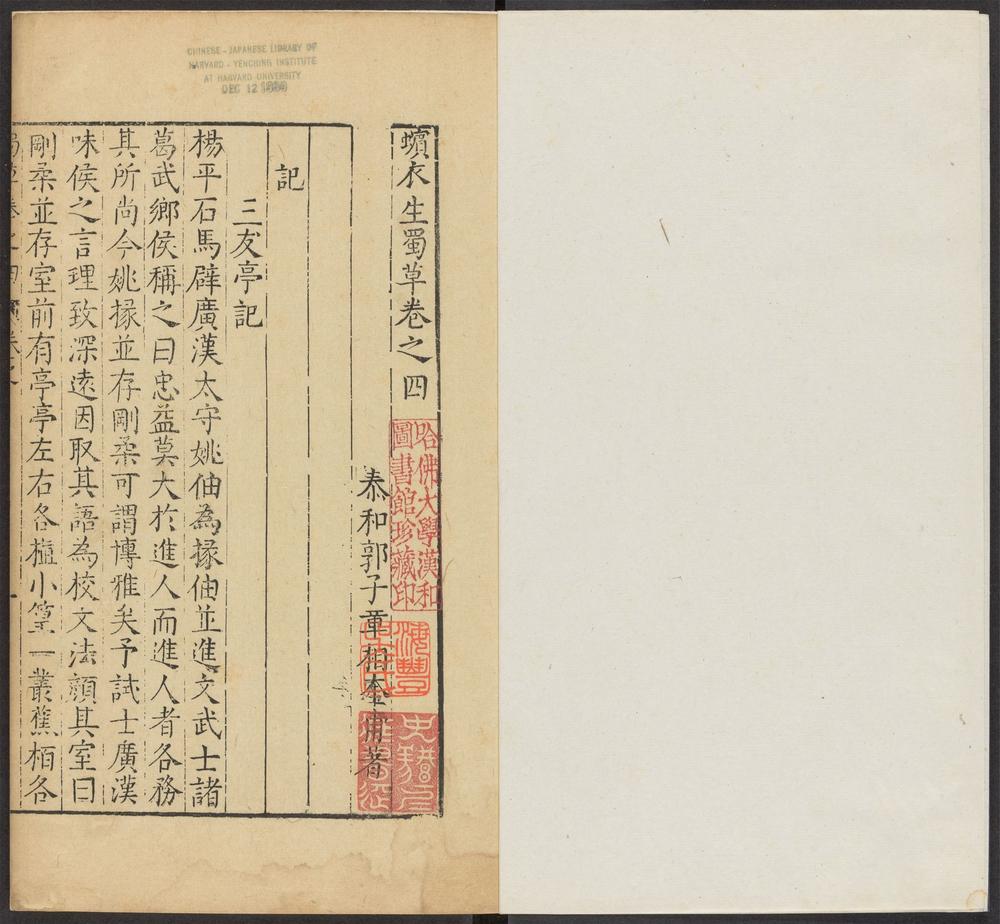 CHINESE - JAPANESE LIBRARY OF
HARVARD - YENCHING INSTITUTE
AT HARVARD UNIVERSITY
DEC 12
蠙衣生蜀草卷之四
哈佛大學漢和
圖書館珍藏印
泰和郭子章相奎甫著
記
三友亭記
楊平石馬辟廣漢太守姚伷為掾伷並進文武士諸
葛武鄉侯稱之曰忠益莫大於進人而進人者各務
其所尚今姚掾並存剛柔可謂博雅矣予試士廣漢
味侯之言理致深遠因取其語為校文法顏其室曰
剛柔並存室前有亭亭左右各植小篁一叢蕉栢各